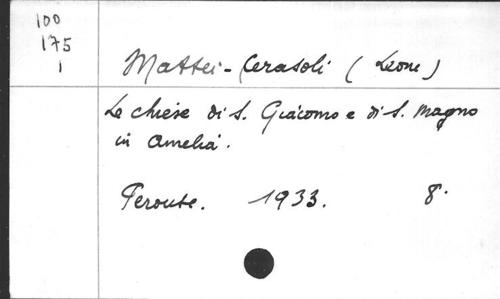 100
175
1
Mattei-Cerasoli (Leone)
Le chiese di S. Giacomo e di S. Magno
in Amelia.
Perouse. 1933. 8.